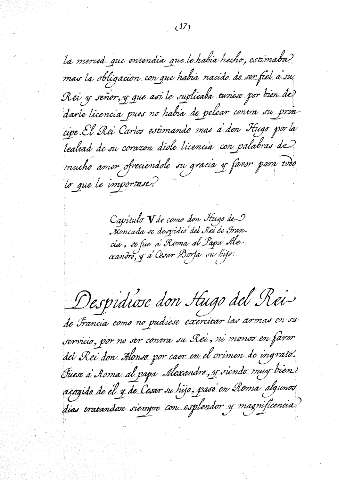 (17)
la merced que entendia que le habia hecho, estimaba
mas la obligacion con que habia nacido de ser fiel á su
Rei y señor, y que asi le suplicaba tuviese por bien de
darle licencia pues no habia de pelear contra su prin-
cipe. El Rei Carlos estimando mas á don Hugo por la
lealtad de su corazon diole licencia con palabras de
mucho amor ofreciendole su gracia y favor para todo
lo que le importase.
Capitulo V de como don Hugo de
Moncada se despidió del Rei de Fran-
cia, se fue á Roma al Papa Ale-
xandro, y á Cesar Borja su hijo.
Despidiose don Hugo del Rei
de Francia como no pudiese exercitar las armas en su
servicio, por no ser contra su Rei, ni menos en favor
del Rei don Alonso por caer en el crimen de ingrato.
Fuese á Roma al papa Alexandro, y siendo muy bien
acogido de él y de Cesar su hijo, pasó en Roma algunos
dias tratandose siempre con esplendor y magnificencia